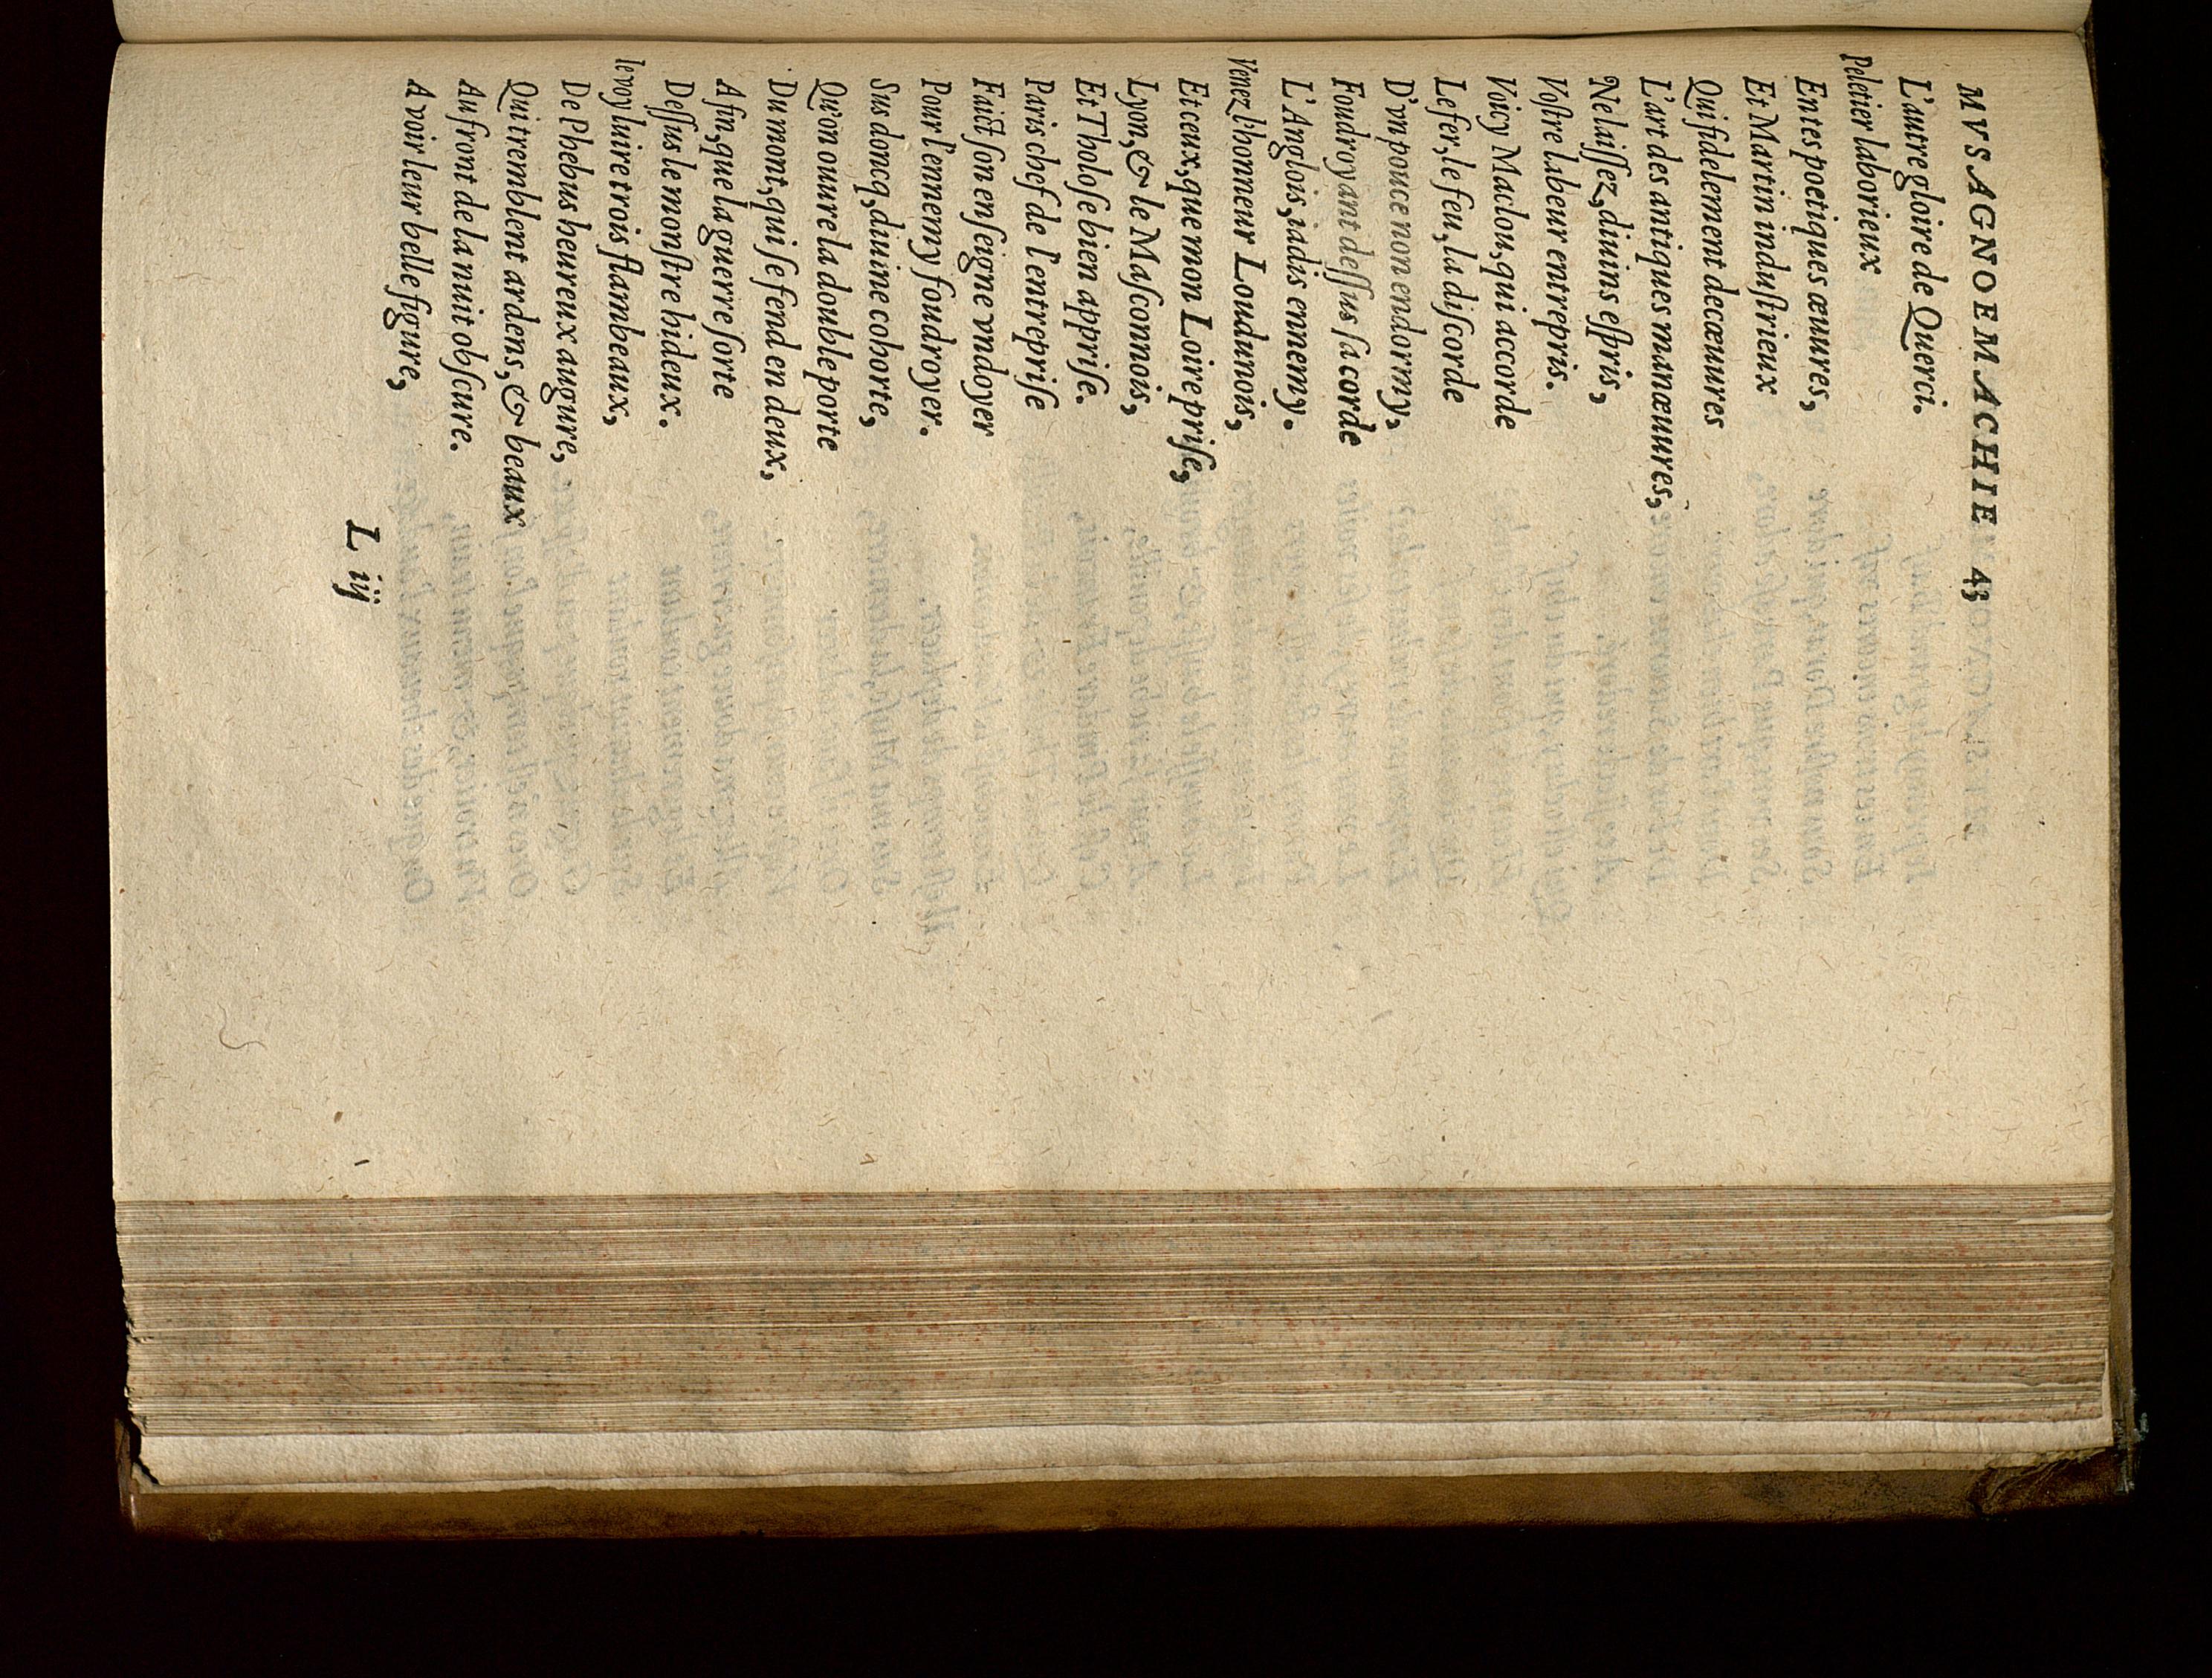 MVSAGNOEMACHIE 43
L'autre gloire de Querci.
Peletier laborieux
En tes poetiques œuures,
Et Martin induſtrieux
Qui fidelement decœuures
L'art des antiques manœuures,
Ne laiſſez, diuins eſpris,
Voſtre labeur entrepris.
Voicy Maclou, qui accorde
Le fer, le feu, la diſcorde
D'vn pouce non endormy,
Foudroyant deſſus ſa corde
L'Anglois, iadis ennemy.
Venez l'honneur Loudunois,
Et ceux, que mon Loire priſe,
Lyon, & le Maſconnois,
Et Tholoſe bien appriſe.
Paris chef de l'entrepriſe
Faict ſon enſeigne vndoyer
Pour l'ennemy foudroyer.
Sus doncq, diuine cohorte,
Qu'on ouure la double porte
Du mont, qui ſe fend en deux,
Afin, que la guerre ſorte
Deſſus le monſtre hideux.
Ie voy luire trois flambeaux,
De Phebus heureux augure,
Qui tremblent ardens, & beaux
Au front de la nuit obſcure.
A voir leur belle figure,
L iij